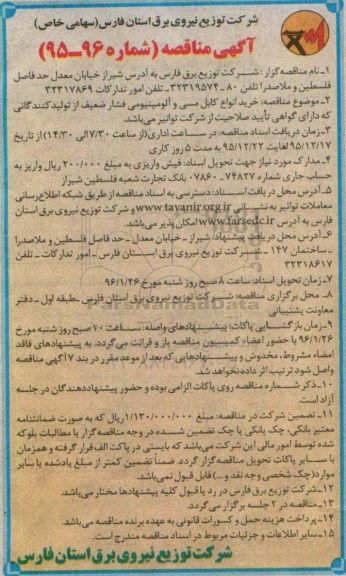 شرکت توزیع نیروی برق استان فارس(سهامی خاص)
آگهی مناقصه (شماره ۹۶-۹۵)
۱-نام مناقصه‌گزار: شــرکت توزیع برق فارس به آدرس شیراز خیابان معدل حد فاصل
فلسطین و ملاصدرا تلفن ۸۰ - ۳۲۳۱۹۵۷۴ـ تلفن امور تدارکات ۳۲۳۱۷۸۶۹
۲-موضوع مناقصه: خرید انواع کابل مسی و آلومینیومی فشار ضعیف از تولیدکنندگانی
که دارای گواهی تأیید صلاحیت از شرکت توانیر می‌باشد.
۳-زمان دریافت اسناد مناقصه: در ســاعت اداری(از ساعت ۷/۳۰الی ۱۴/۳۰) از تاریخ
۹۵/۱۲/۱۷ لغایت ۹۵/۱۲/۲۲ به مدت ۵ روز کاری
۴-مدارک مورد نیاز جهت تحویل اسناد: فیش واریزی به مبلغ ۲۰۰/۰۰۰ ریال واریز به
حساب جاری شماره ۷۴۸۲۷ - ۰۷۸۶۰ بانک تجارت شعبه فلسطین شیراز
۵-آدرس محل دریافت اسـناد: دسترسی به اسناد مناقصه از طریق شبکه اطلاع‌رسانی
معاملات توانیر به نشــانی www.tavanir.org.ir و شرکت توزیع نیروی برق استان
فارس به آدرس www.farsedc.ir امکان پذیر می‌باشد.
۶-آدرس محل دریافت پیشنهاد: شیراز - خیابان معدل -حد فاصل فلسطین و ملاصدرا
- ساختمان ۱۴۷ - شــرکت توزیع نیروی برق اسـتان فارس - امور تدارکات - تلفن
۳۲۳۱۸۶۱۷
۷-زمان تحویل اسناد: ساعت ۸ صبح روز شنبه مورخ ۹۶/۱/۲۶
۸- محل برگزاری مناقصه: شــرکت توزیع نیروی برق استان فارس ـ طبقه اول - دفتر
معاونت پشتیبانی
۹-زمان بازگشایی پاکات: پیشــنهادهای واصله: ســاعت ۱۰ صبح روز شنبه مورخ
۹۶/۱/۲۶ با حضور اعضاء کمیسیون مناقصه باز و قرائت می‌گردد. به پیشنهادهای فاقد
امضاء مشروط، مخدوش و پیشــنهادهایی که بعد از موعد مقرر در بند ۷ آگهی مناقصه
واصل شود ترتیب اثر داده نخواهد شد.
۱۰-ذکر شــماره مناقصه روی پاکات الزامی بوده و حضور پیشنهاددهندگان در جلسه
آزاد است.
۱۱-تضمین شرکت در مناقصه: مبلغ ۱/۱۳۰/۰۰۰/۰۰۰ریال که به صورت ضمانتنامه
معتبر بانکی، چک بانکی یا چک تضمین شــده در وجه مناقصه‌گزار یا مطالبات بلوکه
شده توسط امور مالی این شرکت می‌باشد که بایستی در پاکت الف قرار گرفته و همزمان
با ســایر پاکات تحویل مناقصه‌گزار گردد. ضمناً تضمین کمتر از مبلغ یادشده یا سایر
موارد(چک شخصی وجه نقد و ...) قابل قبول نمی‌باشد.
۱۲-شرکت توزیع برق فارس در رد یا قبول کلیه پیشنهادها مختار می‌باشد.
۱۳-مناقصه در ۲ جلسه برگزار می‌گردد.
۱۴-پرداخت هزینه حمل و کسورات قانونی به عهده برنده مناقصه می‌باشد.
۱۵-سایر اطلاعات و جزئیات مربوط در اسناد مناقصه مندرج است.
شرکت توزیع نیروی برق استان فارس